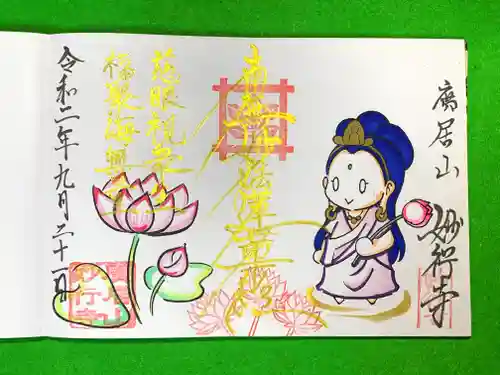 廣居山
妙行寺
南無妙法蓮華経
慈眼視衆生
福聚海無量
令和二年九月二十一日